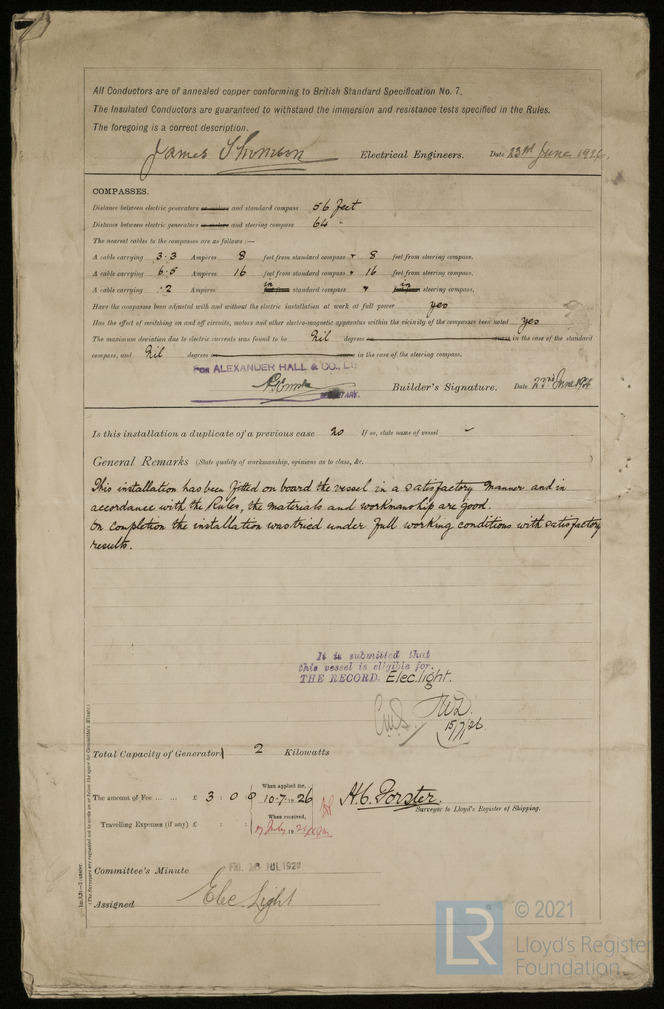 All Conductors are of annealed copper conforming to British Standard Specification No. 7.
The Insulated Conductors are guaranteed to withstand the immersion and resistance tests specified in the Rules.
The foregoing is a correct description.
James Thomson Electrical Engineers. Date 23rd June 1926.
COMPASSES.
Distance between electric generators or motors and standard compass 56 feet
Distance between electric generators or motors and steering compass 64 "
The nearest cables to the compasses are as follows :—
A cable carrying 3.3 Ampères 8 feet from standard compass + 8 feet from steering compass.
A cable carrying 6.5 Ampères 16 feet from standard compass + 16 feet from steering compass.
A cable carrying .2 Ampères in standard compass + in steering compass.
Have the compasses been adjusted with and without the electric installation at work at full power yes
Has the effect of switching on and off circuits, motors and other electro-magnetic apparatus within the vicinity of the compasses been noted yes
The maximum deviation due to electric currents was found to be Nil degrees in the case of the standard
compass, and Nil degrees in the case of the steering compass.
FOR ALEXANDER HALL & CO., LTD
SECRETARY. Builder's Signature. Date 23rd June 1926
Is this installation a duplicate of a previous case no If so, state name of vessel
General Remarks (State quality of workmanship, opinions as to class, &c.
This installation has been fitted on board the vessel in a satisfactory manner and in
accordance with the Rules, the materials and workmanship are good.
On completion the installation was tried under full working conditions with satisfactory
results.
It is submitted that
this vessel is eligible for.
THE RECORD. Elec. light.
15/7/26
Total Capacity of Generators 2 Kilowatts
The amount of Fee ... ... £ 3 : 0 : 0 When applied for, 10.7.1926
H.C. Forster.
Surveyor to Lloyd's Register of Shipping.
Travelling Expenses (if any) £ : : When received,
Committee's Minute FRI. 16 JUL 1926
Assigned Elec. Light
© 2021
LR Lloyd's Register
Foundation